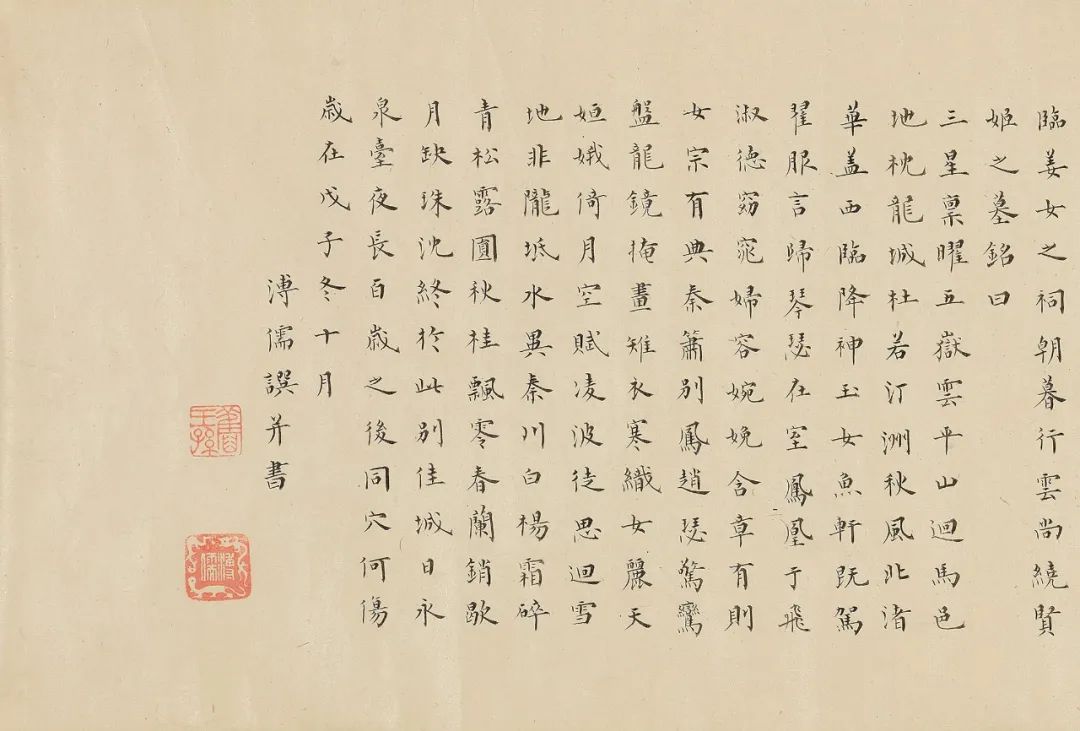 臨姜女之祠朝暮行雲尚繞賢
姬之墓銘曰
三星稟曜五嶽雲平山迴馬邑
地枕龍城杜若汀洲秋風北渚
華蓋西臨降神玉女魚軒既駕
翟服言歸琴瑟在室鳳凰于飛
淑德窈窕婦容婉娩含章有則
女宗有典秦簫別鳳趙瑟驚鸞
盤龍鏡掩畫雉衣寒織女麗天
姮娥倚月空賦凌波徒思迴雪
地非隴坻水異秦川白楊霜碎
青松露圓秋桂飄零春蘭銷歇
月缺珠沈終於此別佳城日永
泉臺夜長百歲之後同穴何傷
歲在戊子冬十月
溥儒譔并書
舊王孫
溥儒